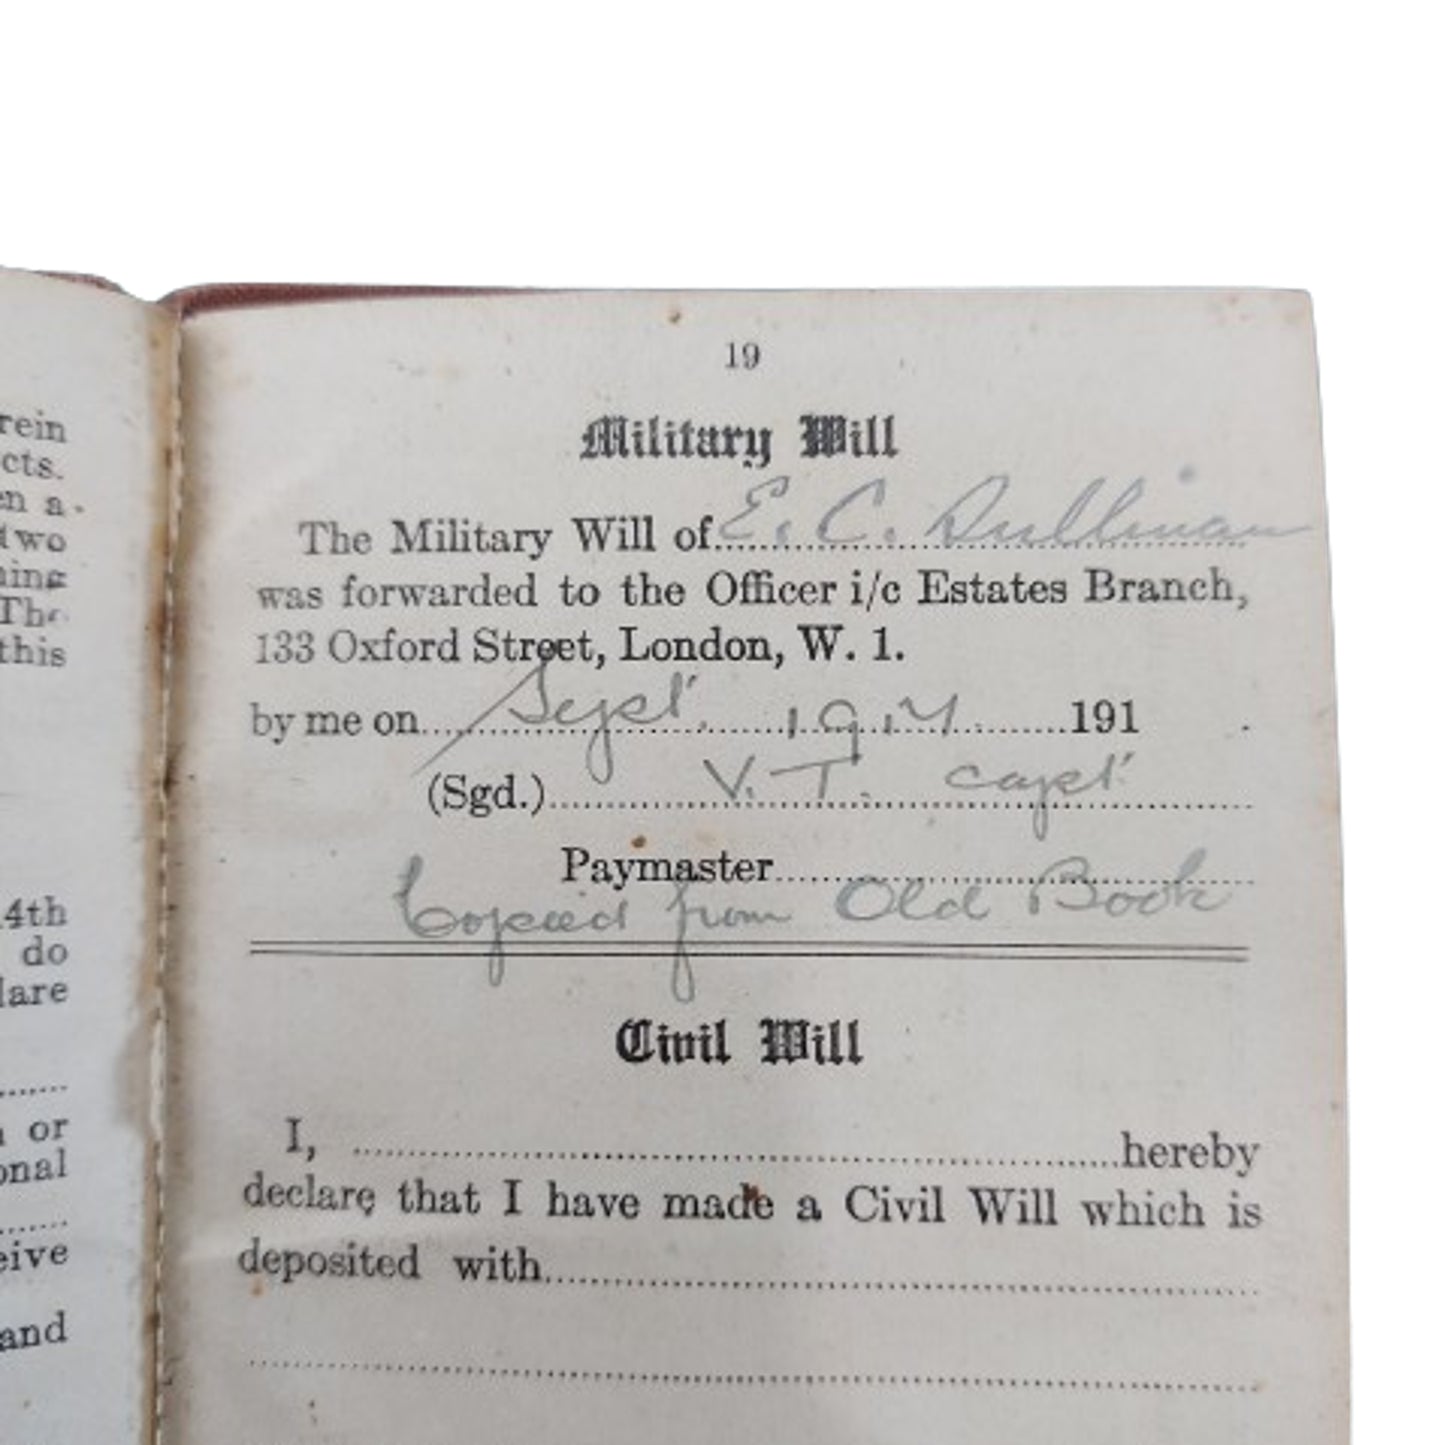 rein
cts.
en a
two
The
this
14th
do
lare
or
onal
eive
and
19
Military Will
The Military Will of E. C. Sullivan
was forwarded to the Officer i/c Estates Branch,
133 Oxford Street, London, W. 1.
by me on Sept. 1917 191
(Sgd.) V. T. Capt
Paymaster
Copied from Old Book
Civil Will
I, hereby
declare that I have made a Civil Will which is
deposited with